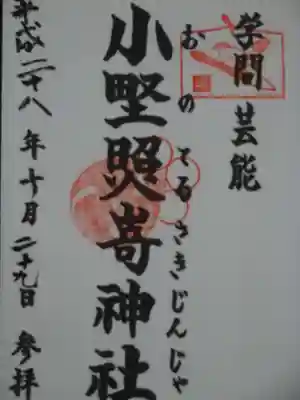 学問芸能
小野照崎神社
おのてるさきじんじゃ
平成二十八年十月二十九日 参拝